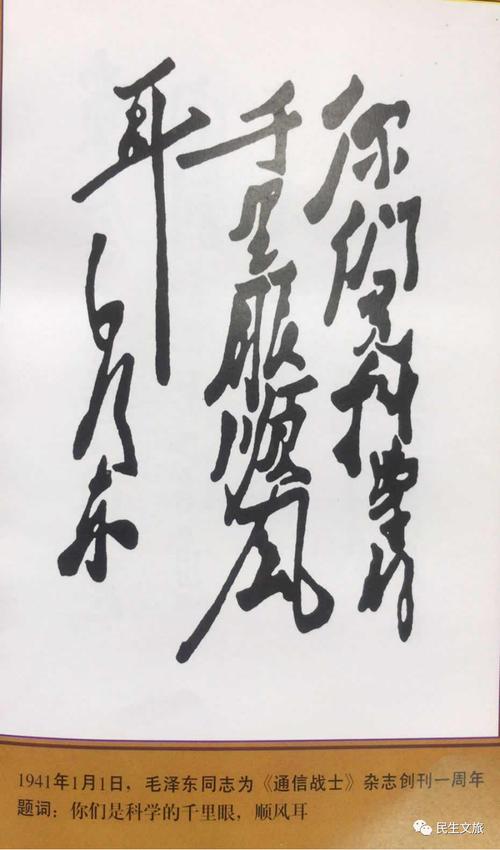 你們是科学的
千里眼順风
耳
毛泽东
1941年1月1日，毛泽东同志为《通信战士》杂志创刊一周年
题词：你们是科学的千里眼，顺风耳
民生文旅